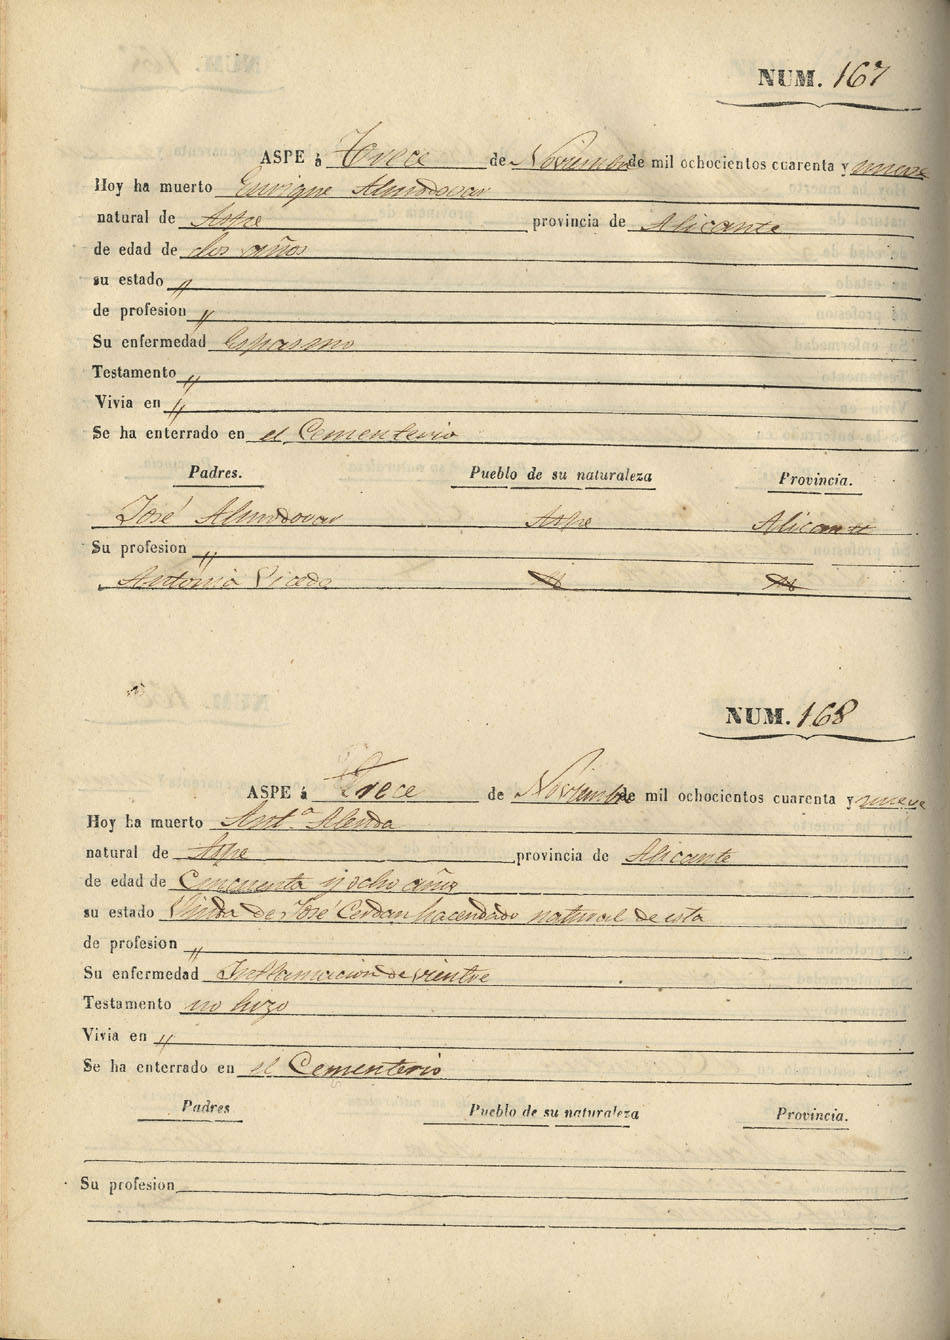 NUM. 167
ASPE á Trece de Noviembre de mil ochocientos cuarenta y nueve
Hoy ha muerto Enrique Almodovar
natural de Aspe provincia de Alicante
de edad de dos años
su estado "
de profesion "
Su enfermedad Espasmo
Testamento "
Vivia en "
Se ha enterrado en el Cementerio
Padres. Pueblo de su naturaleza Provincia.
José Almodovar Aspe Alicante
Su profesion "
Antonia
NUM. 168
ASPE á Trece de Noviembre de mil ochocientos cuarenta y nueve
Hoy ha muerto Antª Alenda
natural de Aspe provincia de Alicante
de edad de Cincuenta y ocho años
su estado Viuda de José Cerdan hacendado natural de esta
de profesion "
Su enfermedad Inflamacion de vientre
Testamento no hizo
Vivia en "
Se ha enterrado en el Cementerio
Padres Pueblo de su naturaleza Provincia.
Su profesion